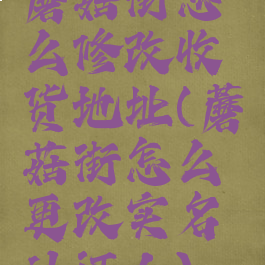 蘑菇街怎
么修改收
货地址(蘑
菇街怎么
更改实名
认证人)